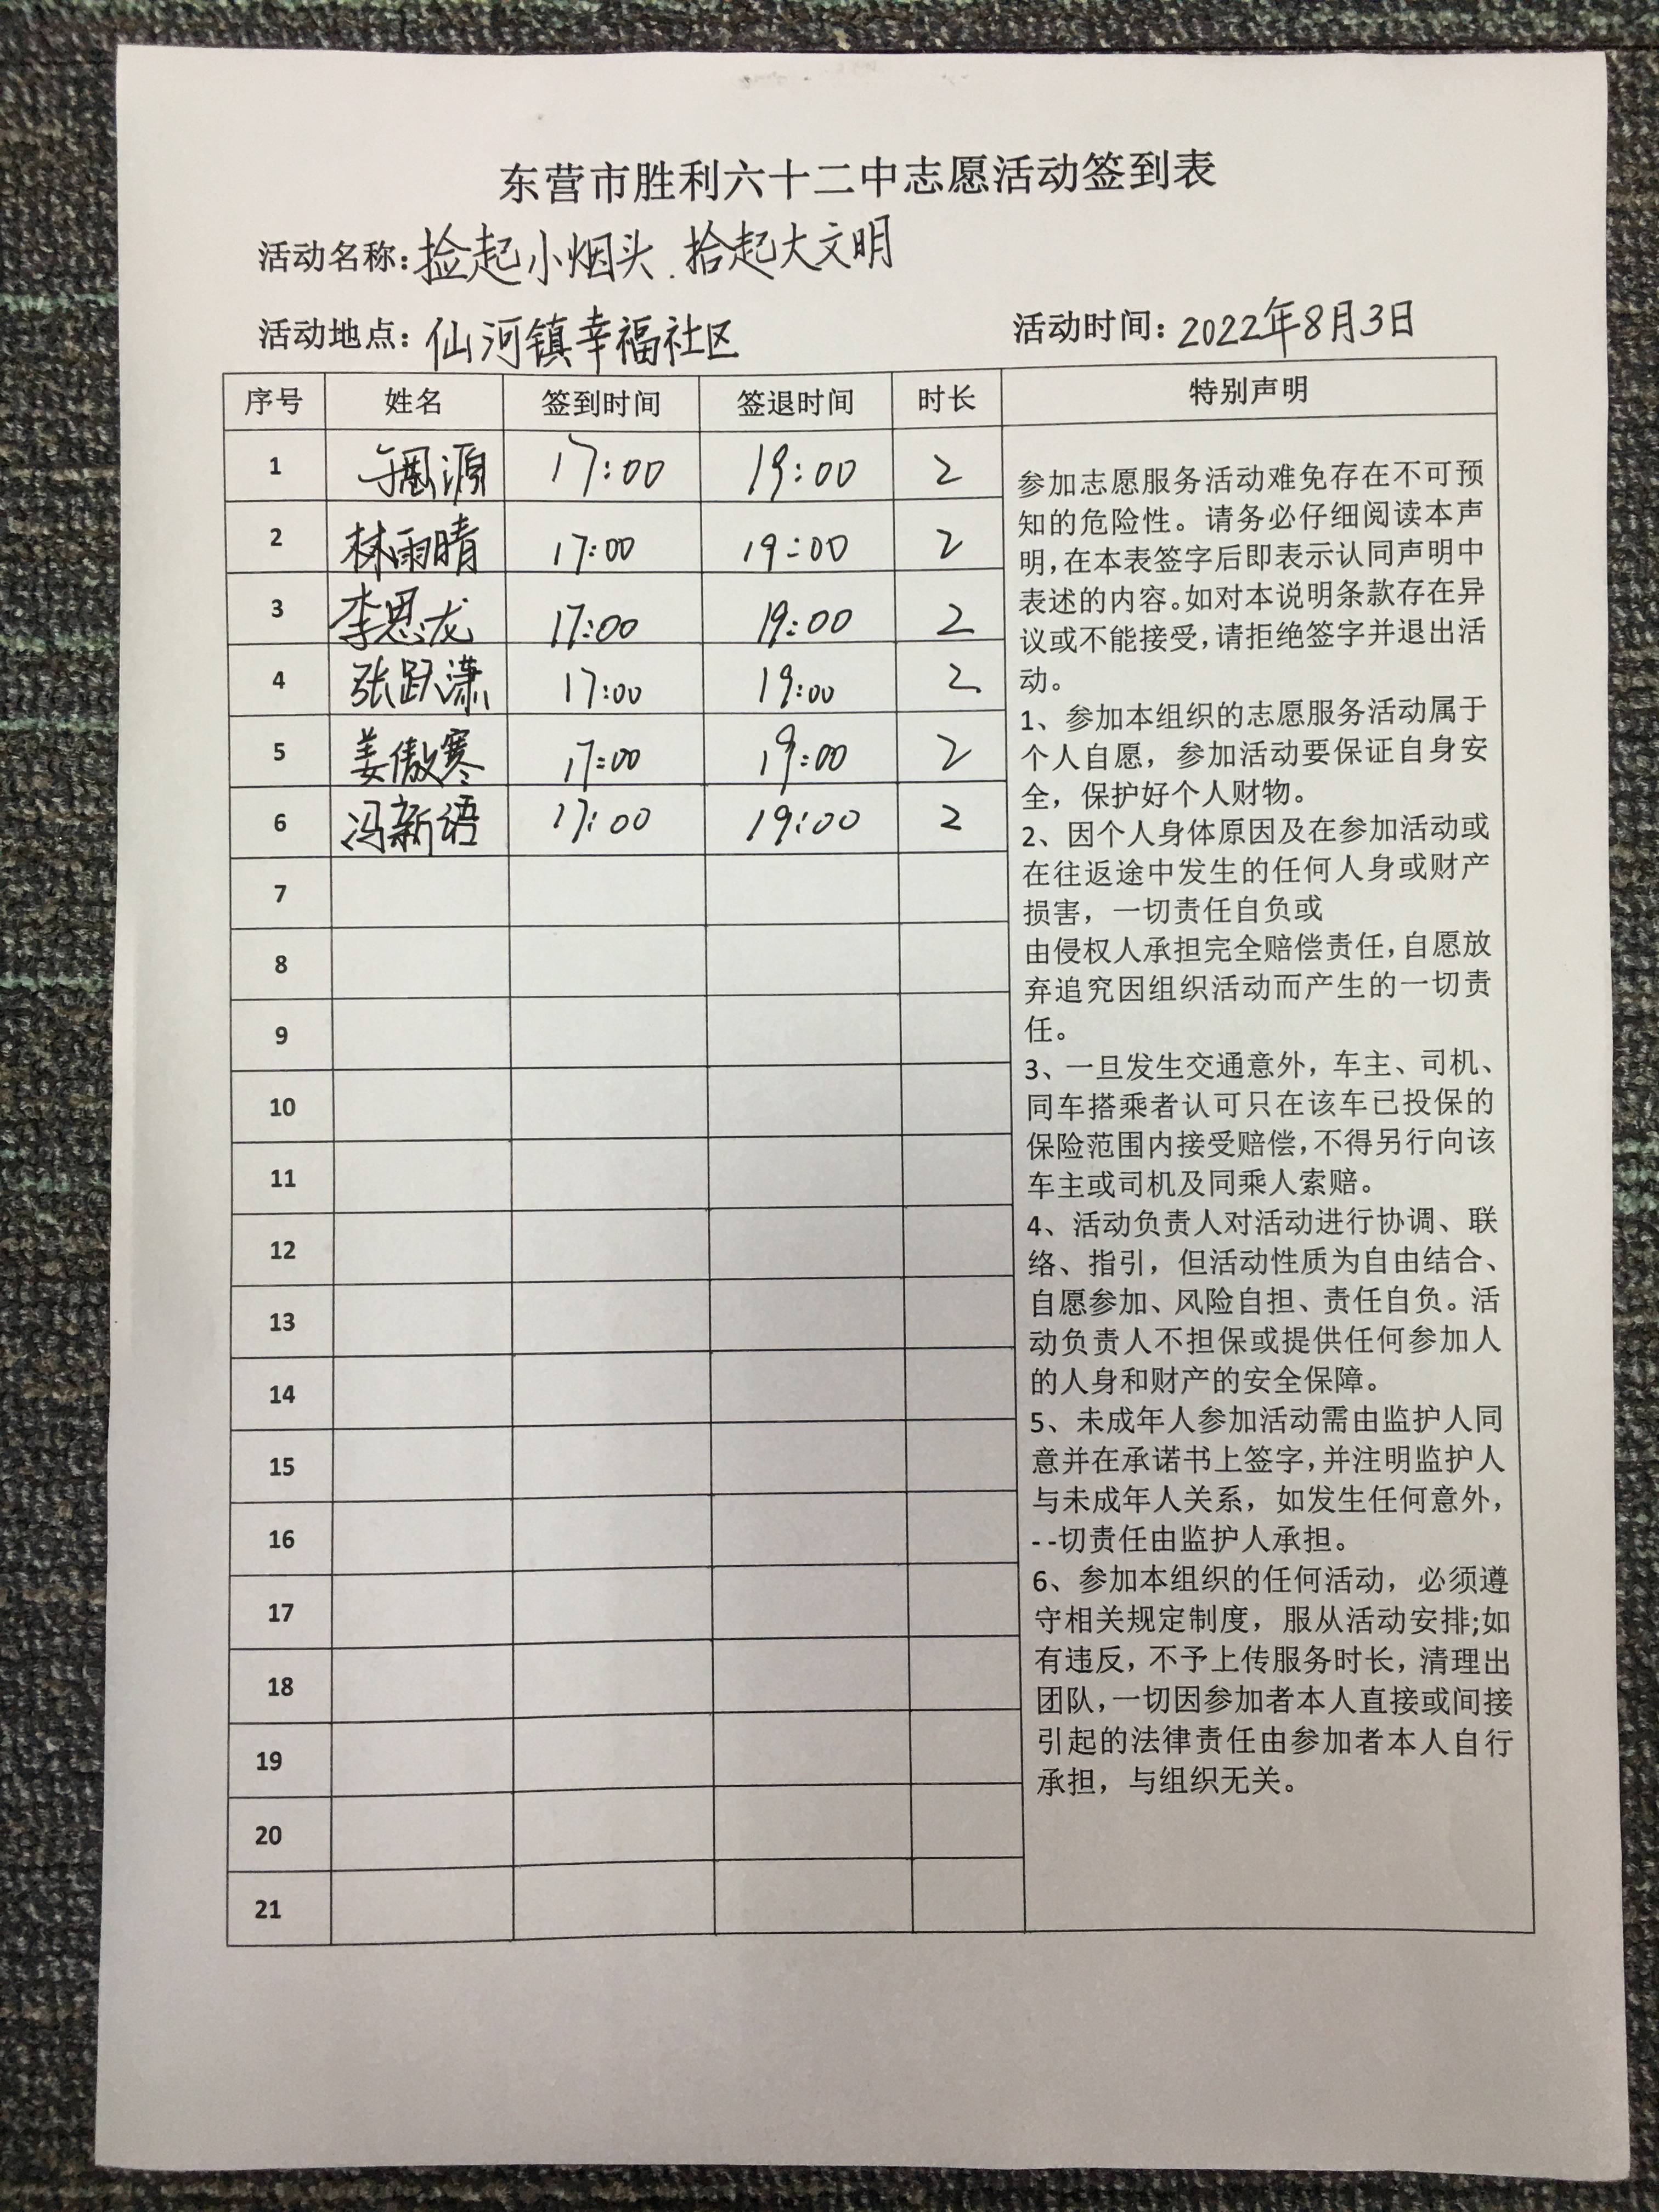 东营市胜利六十二中志愿活动签到表
活动名称:捡起小烟头.拾起大文明
活动地点:仙河镇幸福社区 活动时间:2022年8月3日
序号 姓名 签到时间 签退时间 时长 特别声明
1 17:00 19:00 2
2 林雨晴 17:00 19:00 2
3 李恩龙 17:00 19:00 2
4 张跃潇 17:00 19:00 2
5 姜傲寒 17:00 19:00 2
6 冯新语 17:00 19:00 2
7
8
9
10
11
12
13
14
15
16
17
18
19
20
21
参加志愿服务活动难免存在不可预
知的危险性。请务必仔细阅读本声
明,在本表签字后即表示认同声明中
表述的内容。如对本说明条款存在异
议或不能接受,请拒绝签字并退出活
动。
1、参加本组织的志愿服务活动属于
个人自愿，参加活动要保证自身安
全，保护好个人财物。
2、因个人身体原因及在参加活动或
在往返途中发生的任何人身或财产
损害，一切责任自负或
由侵权人承担完全赔偿责任,自愿放
弃追究因组织活动而产生的一切责
任。
3、一旦发生交通意外，车主、司机、
同车搭乘者认可只在该车已投保的
保险范围内接受赔偿,不得另行向该
车主或司机及同乘人索赔。
4、活动负责人对活动进行协调、联
络、指引，但活动性质为自由结合、
自愿参加、风险自担、责任自负。活
动负责人不担保或提供任何参加人
的人身和财产的安全保障。
5、未成年人参加活动需由监护人同
意并在承诺书上签字,并注明监护人
与未成年人关系，如发生任何意外，
--切责任由监护人承担。
6、参加本组织的任何活动，必须遵
守相关规定制度，服从活动安排;如
有违反，不予上传服务时长，清理出
团队,一切因参加者本人直接或间接
引起的法律责任由参加者本人自行
承担，与组织无关。